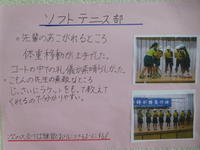 ソフトテニス部
・先輩のあこがれるところ
体重移動が上手でした。
コートの中での礼儀が素晴らしかった。
・こもんの先生の素敵なところ
じっさいにラケットをもって教えて
くれるので分かりやすい。